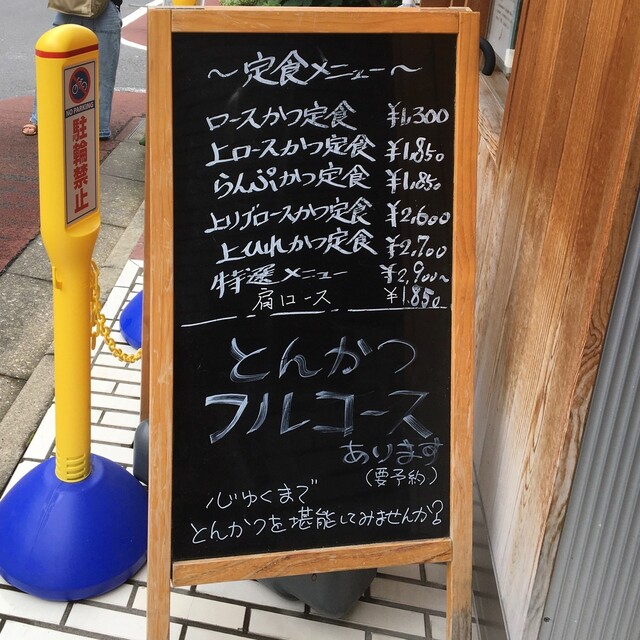 NO PARKING
駐輪禁止
～定食メニュー～
ロースかつ定食 ¥1,300
上ロースかつ定食 ¥1,850
らんぷかつ定食 ¥1,850
上リブロースかつ定食 ¥2,600
上ひれかつ定食 ¥2,700
特選メニュー ¥2,900～
肩ロース ¥1,850
とんかつ
フルコース
あります
(要予約)
心ゆくまで
とんかつを堪能してみませんか?